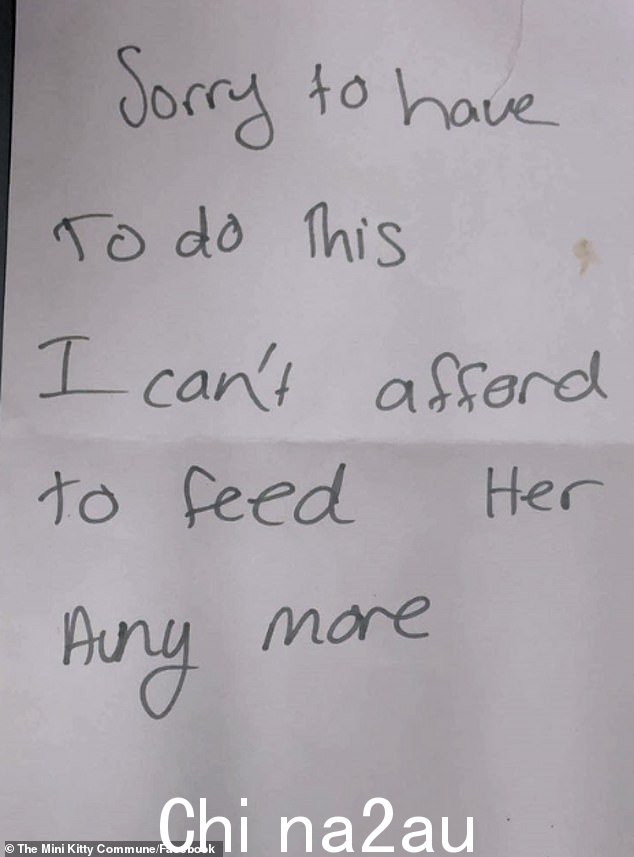 Sorry to have
To do This
I can't afford
to feed Her
Auny more
Chi na2au
© The Mini Kitty Commune/Facebook